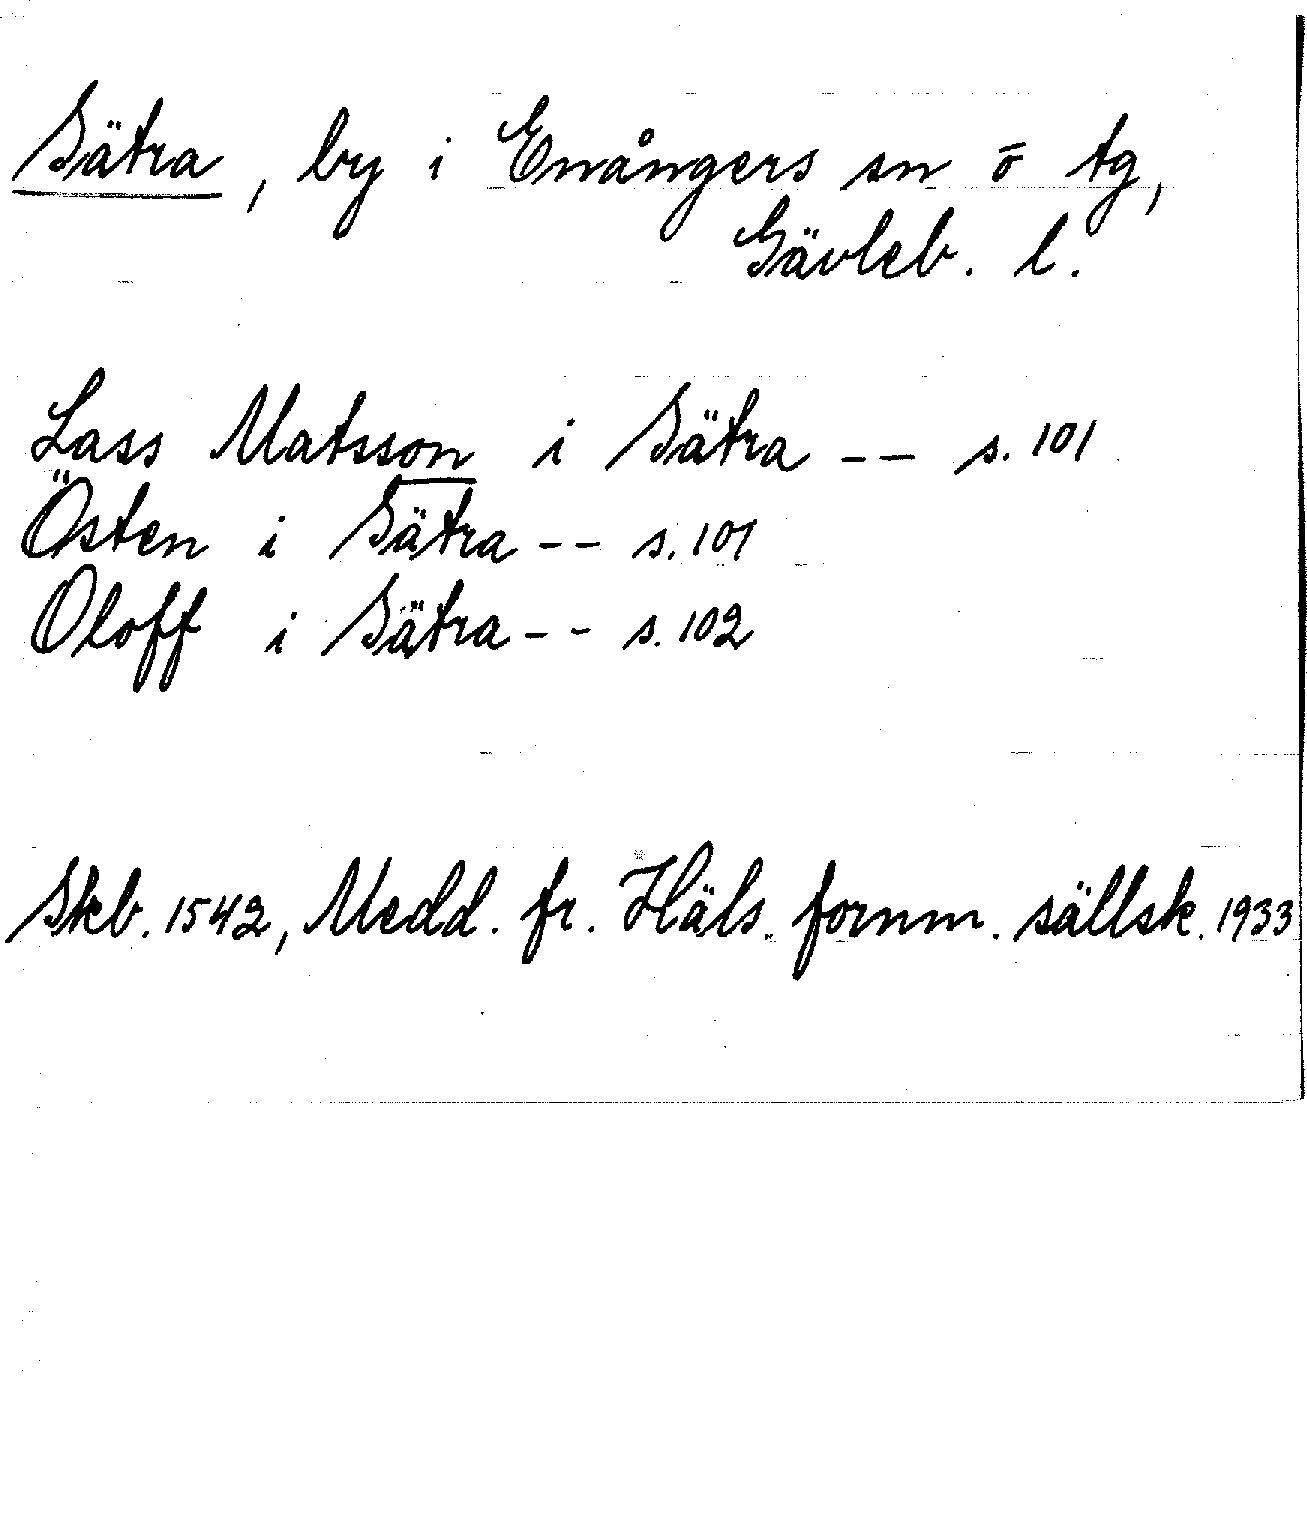 Sätra, by i Enångers sn ō tg,
Gävleb. l.
Lass Matsson i Sätra -- s. 101
Östen i Sätra -- s. 101
Oloff i Sätra -- s. 102
Skb. 1542, Medd. fr. Häls. fornm. sällsk. 1933